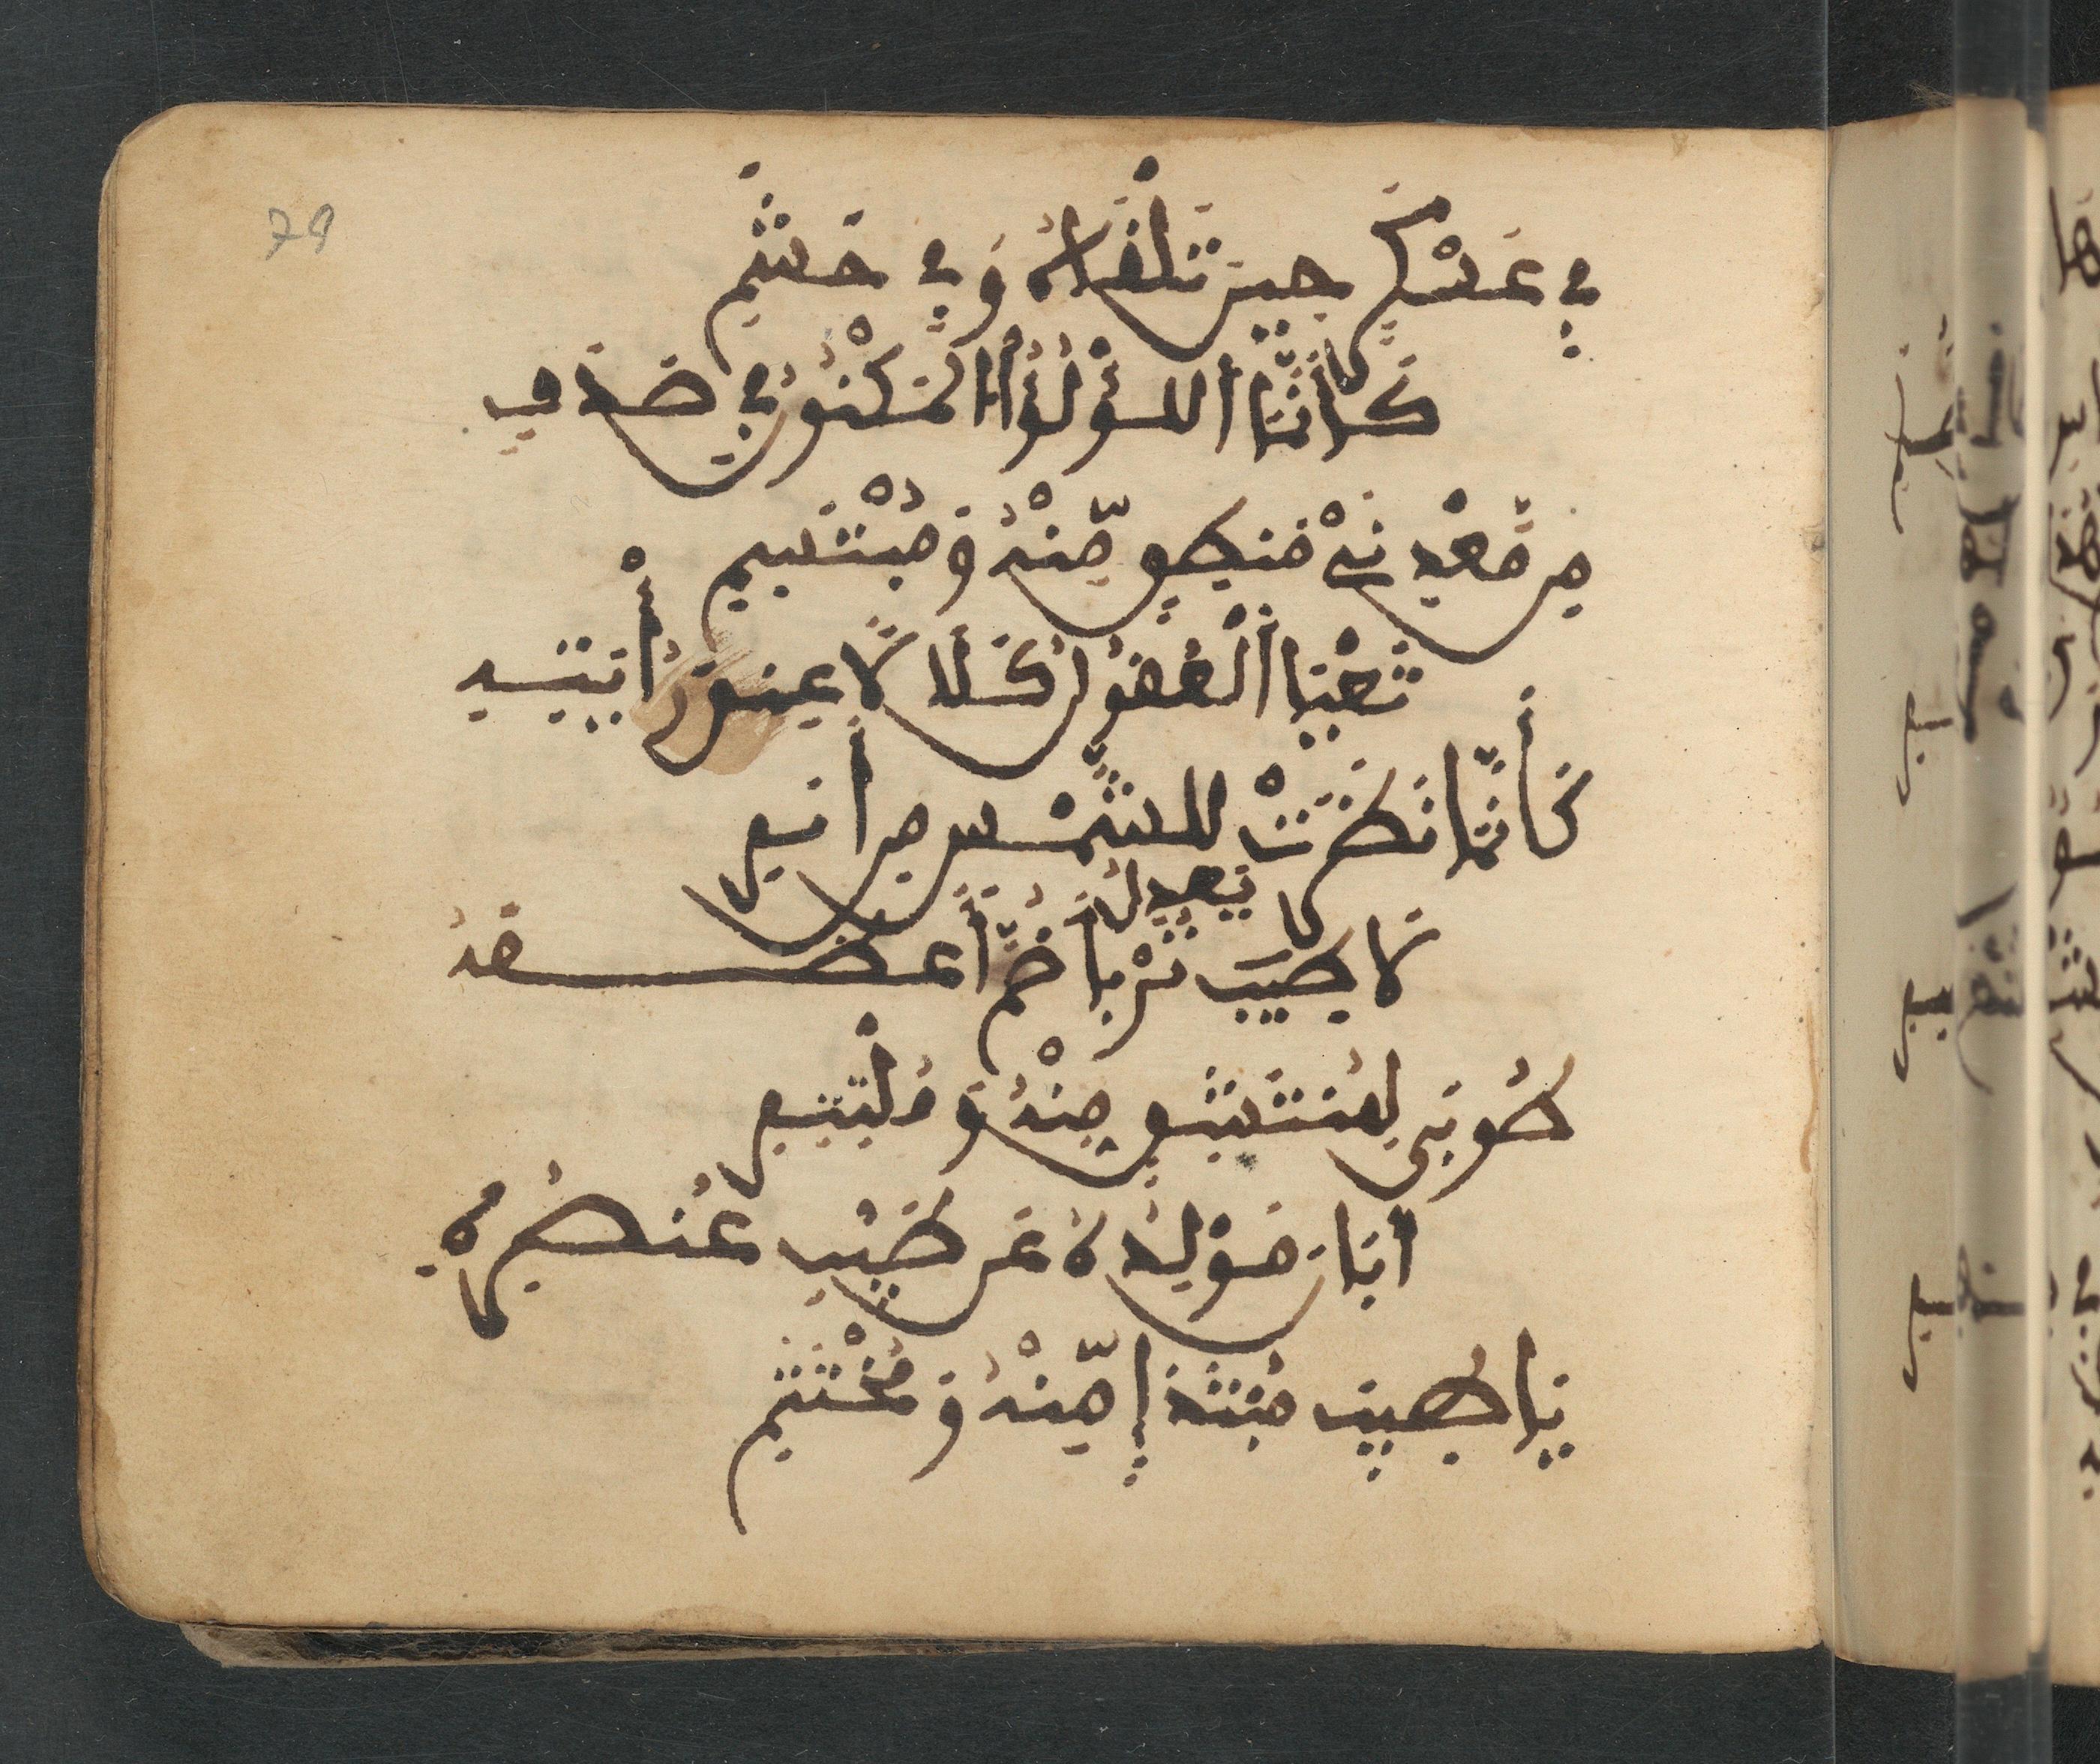 79
في عَسْكَرٍ حِينَ تَلْقَاهُ وَفِي حَشَمِ
كَأَنَّمَا اللؤْلُؤُ الْمَكْنُونُ فِي صَدَفِ
مِن مَعْدِنَيْ مَنطِقٍ مِّنْهُ وَمُبْتَسِمِ
تَعْيَا الْعُقُولُ كَلَالًا عِند رأيتِه
كَأَنَّمَا نَظَرَتْ للشَّمْسِ مِن أَمَمِ
لَا طِيبَ يَعدِلُ تُرْبا ضَمَّ أَعظمَهُ
طُوبَى لِمُنتَشِقٍ مِنْهُ وَمُلْتَثِمِ
أَبَانَ مَوْلِدُهُ عَن طِيبِ عُنصُرِهِ
يَا طِيبَ مُبْتَدَإٍ مِّنْهُ وَمُخْتَتَمِ